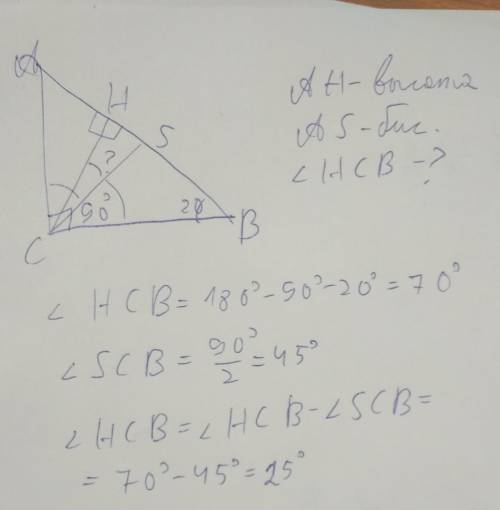 A
H
S
?
90°
20
B
C
AH - высота
AS - бис.
∠HCB - ?
∠ HCB = 180° - 90° - 20° = 70°
∠ SCB = 90°/2 = 45°
∠ HCB = ∠ HCB - ∠ SCB =
= 70° - 45° = 25°